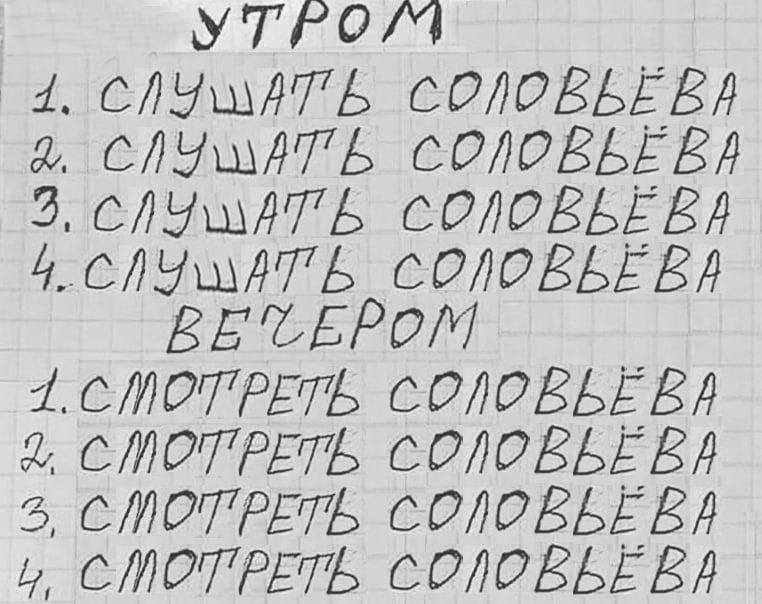 УТРОМ
1. СЛУШАТЬ СОЛОВЬЁВА
2. СЛУШАТЬ СОЛОВЬЁВА
3. СЛУШАТЬ СОЛОВЬЁВА
4. СЛУШАТЬ СОЛОВЬЁВА
ВЕЧЕРОМ
1. СМОТРЕТЬ СОЛОВЬЁВА
2. СМОТРЕТЬ СОЛОВЬЁВА
3. СМОТРЕТЬ СОЛОВЬЁВА
4. СМОТРЕТЬ СОЛОВЬЁВА